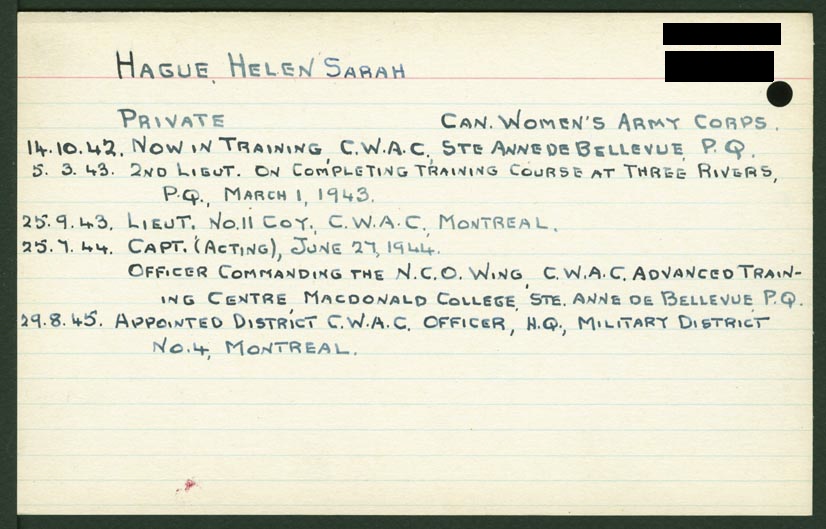 HAGUE, HELEN SARAH
PRIVATE CAN. WOMEN'S ARMY CORPS.
14.10.42. NOW IN TRAINING, C.W.A.C., STE ANNE DE BELLEVUE, P.Q.
5. 3. 43. 2ND LIEUT. ON COMPLETING TRAINING COURSE AT THREE RIVERS,
P.Q., MARCH 1, 1943.
25.9.43. LIEUT. NO.11 COY., C.W.A.C., MONTREAL.
25.7.44. CAPT. (ACTING), JUNE 27, 1944.
OFFICER COMMANDING THE N.C.O. WING, C.W.A.C. ADVANCED TRAIN-
ING CENTRE, MACDONALD COLLEGE, STE. ANNE DE BELLEVUE, P.Q.
29.8.45. APPOINTED DISTRICT C.W.A.C. OFFICER, H.Q., MILITARY DISTRICT
NO.4, MONTREAL.